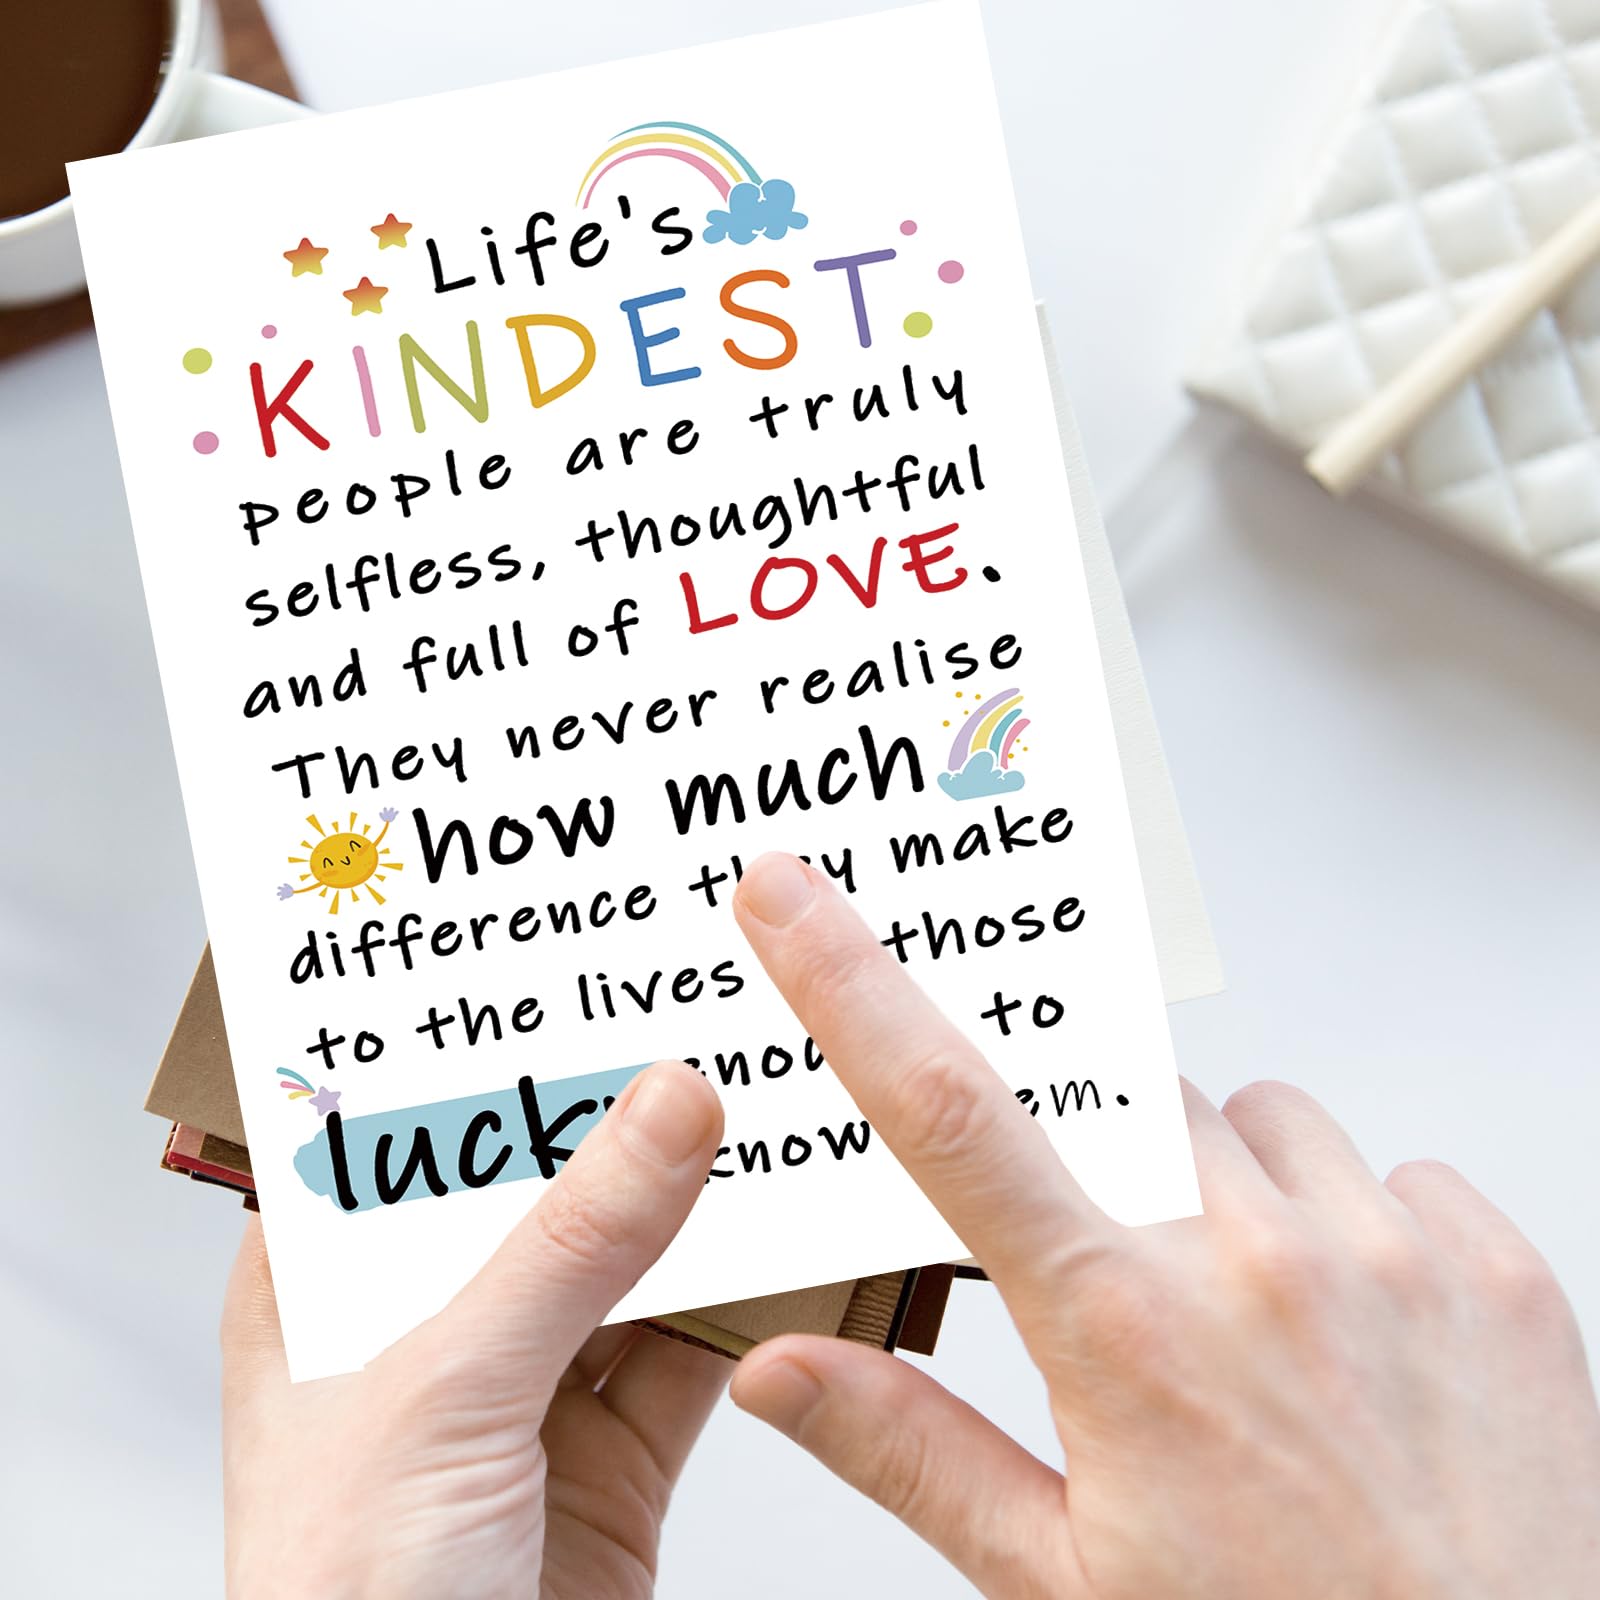 Life's
KINDEST
people are truly
selfless, thoughtful
and full of LOVE.
They never realise
how much
difference they make
to the lives those
lucky enough to
know them.